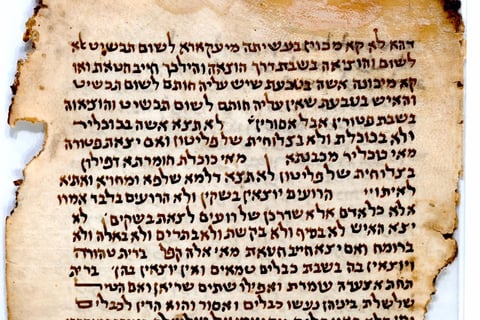 דהא לא קא מכוין בעשייתה מיעקארא לשום תכשיט לא
לשום והוצואה בשבת דרך הוצאה והילכך חייב חטאת ואו
קא מיבונה אשה בטבעת שיש עליה חותם לשום תכשיט
והאיש בטבעת שאין עליה חותם לשום תכשיט והוצואוה
בשבת פטורין אבל אסורין לא תצא אשה בכוכליר
ולא בכוכלת ולא בצלוחית של פליטון ואם יצאת פטורה
מאי כוכליר מכבנתא מאי כוכלת חומרתא דפילון
בצלוחית של פליטון לא תצא דלמא שלפא ומחויא ואתיא
לאיתויי הרועים יוצאין בשקין ולא הרועים בלבד אמרו
אלא כל אדם אלא שדרכן של רועים לצאת בשקים לא
יצא האיש לא בסיף ולא בקשת ולא בתריס ולא באלה ולא
ברומח ואם יצא חייב חטאת מאי אלה קפל בירית טהורה
ויוצאין בה בשבת כבלים טמאים ואין יוצאין בהן בירית
תחת אצעדה עומדת ואפילו שתים שריאן ואם הטיל
שלשלת ביניהן נעשו כבלים ואסור והוא הדין לכבלים